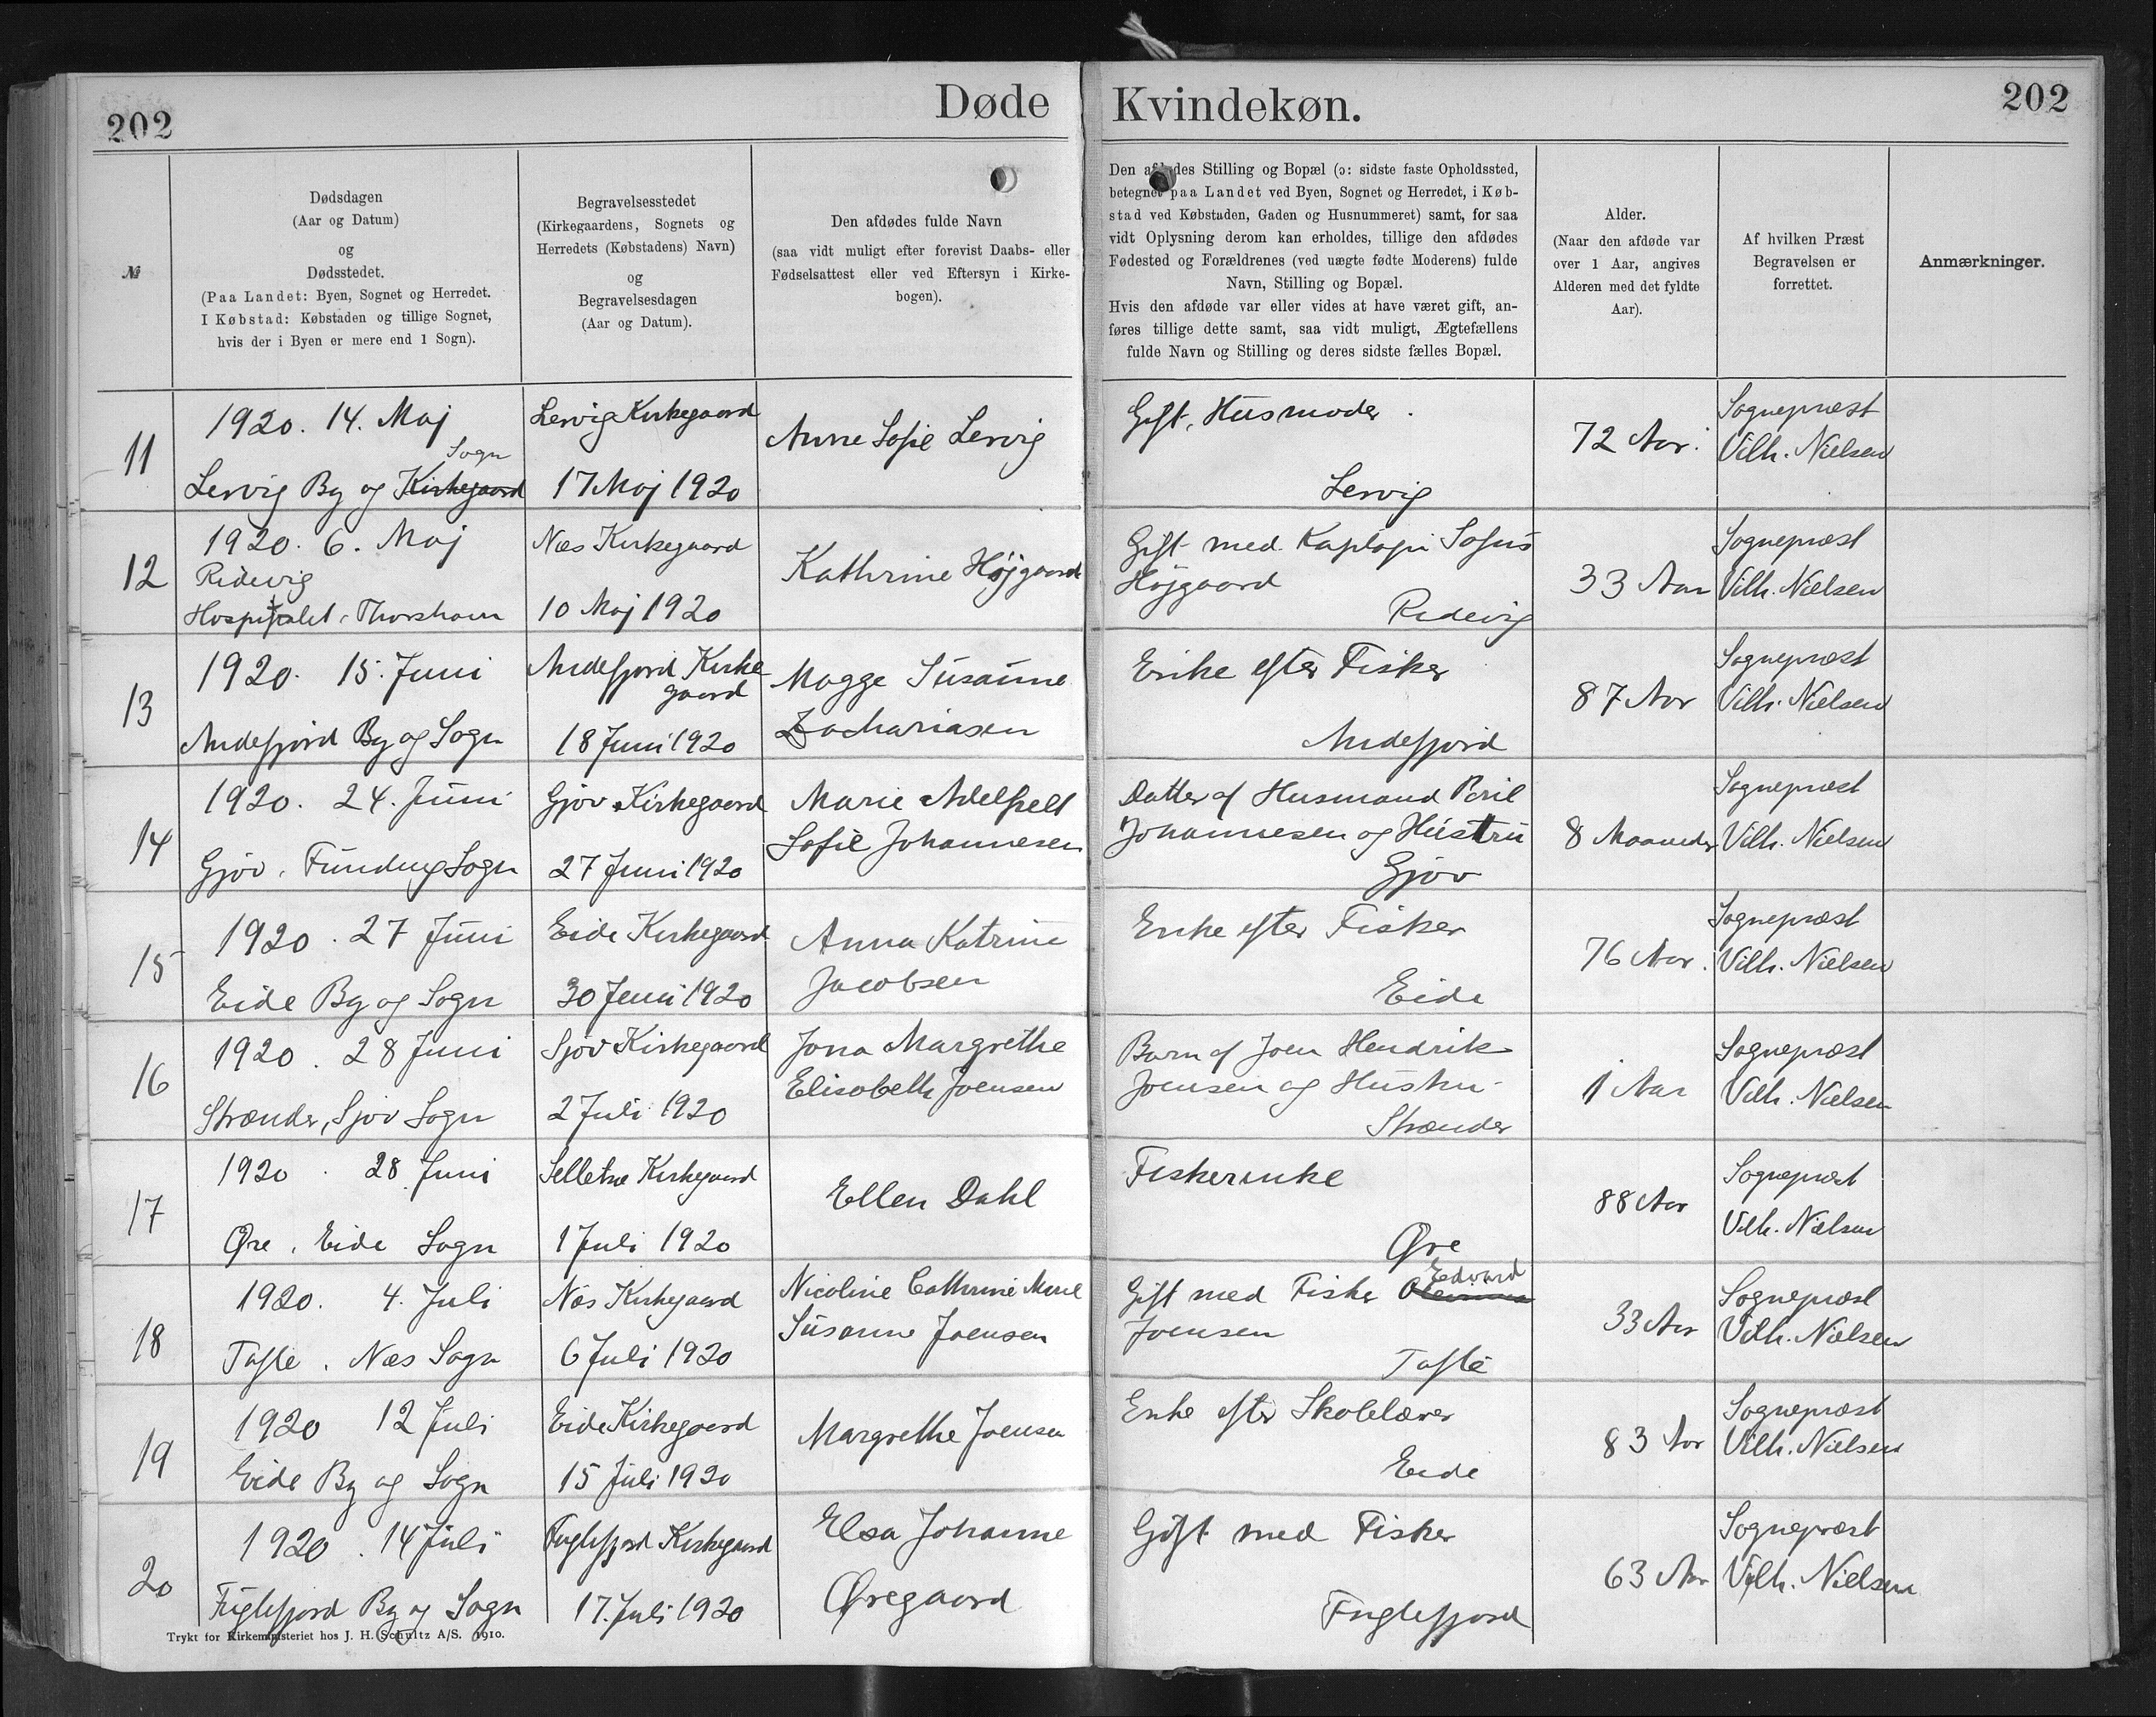 202
Døde
Kvindekøn.
202
№
Dødsdagen
(Aar og Datum)
og
Dødsstedet.
(Paa Landet: Byen, Sognet og Herredet.
I Købstad: Købstaden og tillige Sognet,
hvis der i Byen er mere end 1 Sogn).
Begravelsesstedet
(Kirkegaardens, Sognets og
Herredets (Købstadens) Navn)
og
Begravelsesdagen
(Aar og Datum).
Den afdødes fulde Navn
(saa vidt muligt efter forevist Daabs- eller
Fødselsattest eller ved Eftersyn i Kirke-
bogen).
Den afdødes Stilling og Bopæl (ɔ: sidste faste Opholdssted,
betegnet paa Landet ved Byen, Sognet og Herredet, i Køb-
stad ved Købstaden, Gaden og Husnummeret) samt, for saa
vidt Oplysning derom kan erholdes, tillige den afdødes
Fødested og Forældrenes (ved uægte fødte Moderens) fulde
Navn, Stilling og Bopæl.
Hvis den afdøde var eller vides at have været gift, an-
føres tillige dette samt, saa vidt muligt, Ægtefællens
fulde Navn og Stilling og deres sidste fælles Bopæl.
Alder.
(Naar den afdøde var
over 1 Aar, angives
Alderen med det fyldte
Aar).
Af hvilken Præst
Begravelsen er
forrettet.
Anmærkninger.
11
1920. 14. Maj
Sogn
Lervig By og Kirkegaard
Lervig Kirkegaard
17 Maj 1920
Anne Sofie Lervig
Gift, Husmoder.
Lervig
72 Aar.
Sognepræst
Vilh. Nielsen
12
1920. 6. Maj
Ridevig
Hospitalet, Thorshavn
Næs Kirkegaard
10 Maj 1920
Kathrine Højgaard
Gift med Sofus
Højgaard
Ridevig
33 Aar
Sognepræst
Vilh. Nielsen
13
1920. 15. Juni
Andefjord By og Sogn
Andefjord Kirke
gaard
18 Juni 1920
Magge Susanne
Zachariasen
Enke efter Fisker
Andefjord
87 Aar
Sognepræst
Vilh. Nielsen
14
1920. 24. Juni
Gjov, Funding Sogn
Gjov Kirkegaard
27 Juni 1920
Marie
Sofie Johannesen
Datter af Husmand
Johannesen og Hustru
Gjov
8 Maaneder
Sognepræst
Vilh. Nielsen
15
1920. 27 Juni
Eide By og Sogn
Eide Kirkegaard
30 Juni 1920
Anna Katrine
Jacobsen
Enke efter Fisker
Eide
76 Aar.
Sognepræst
Vilh. Nielsen
16
1920. 28 Juni
Strænder, Sjov Sogn
Sjov Kirkegaard
2 Juli 1920
Jona Margrethe
Elisabeth Joensen
Barn af Joen Hendrik
Joensen og Hustru
Strænder
1 Aar
Sognepræst
Vilh. Nielsen
17
1920. 28 Juni
Øre, Eide Sogn
Selletræ Kirkegaard
1 Juli 1920
Ellen Dahl
Fiskerenke
Øre
88 Aar
Sognepræst
Vilh. Nielsen
18
1920. 4. Juli
Tofte, Næs Sogn
Næs Kirkegaard
6 Juli 1920
Nicoline Cathrine Marie
Susanne Joensen
Edvard
Gift med Fisker
Joensen
Tofte
33 Aar
Sognepræst
Vilh. Nielsen
19
1920 12 Juli
Eide By og Sogn
Eide Kirkegaard
15 Juli 1920
Margrethe Joensen
Enke efter Skolelærer
Eide
83 Aar
Sognepræst
Vilh. Nielsen
20
1920. 14 Juli
Fuglefjord By og Sogn
Fuglefjord Kirkegaard
17. Juli 1920
Elsa Johanne
Øregaard
Gift med Fisker
Fuglefjord
63 Aar
Sognepræst
Vilh. Nielsen
Trykt for Kirkeministeriet hos J. H. Schultz A/S. 1910.